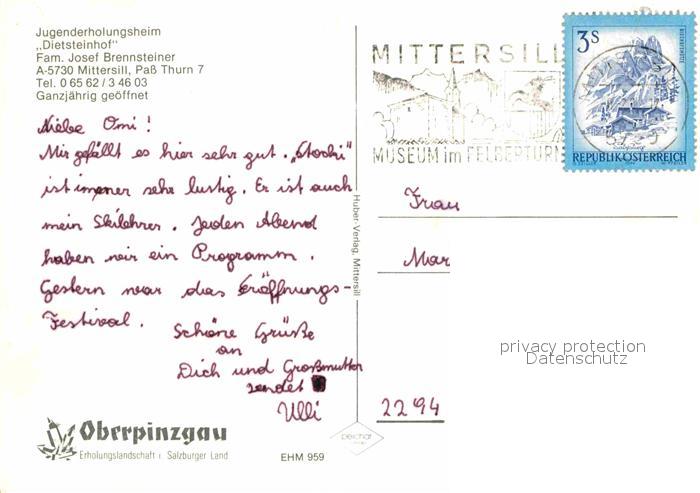 Jugenderholungsheim
„Dietsteinhof"
Fam. Josef Brennsteiner
A-5730 Mittersill, Paß Thurn 7
Tel. 0 65 62 / 3 46 03
Ganzjährig geöffnet
Liebe Omi!
Mir gefällt es hier sehr gut. „Stocki"
ist immer sehr lustig. Er ist auch
mein Skilehrer. Jeden Abend
haben wir ein Programm.
Gestern war das Eröffnungs-
Festival.
Schöne Grüße
an
Dich und Großmutter
sendet
Ulli
Oberpinzgau
Erholungslandschaft i. Salzburger Land
EHM 959
Huber-Verlag, Mittersill
MITTERSILL
MUSEUM im FELBERTURM
3 S
REPUBLIK ÖSTERREICH
Frau
Mar
privacy protection
Datenschutz
2294